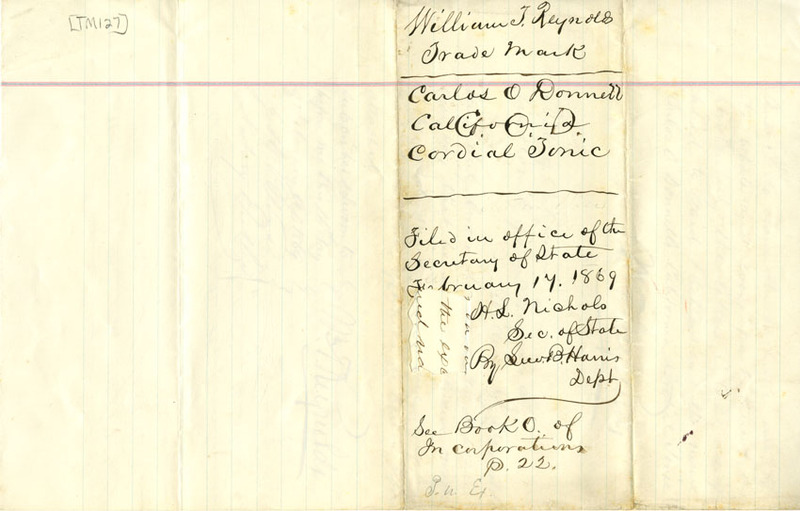 [TM127]
William T. Reynolds
Trade Mark
Carlos O Donnell
California
C. O. D.
Cordial Tonic
Filed in office of the
Secretary of State
February 17. 1869
H. L. Nichols
Sec. of State
By Geo. B. Harris
Dept
See Book O. of
Incorporations
P. 22.